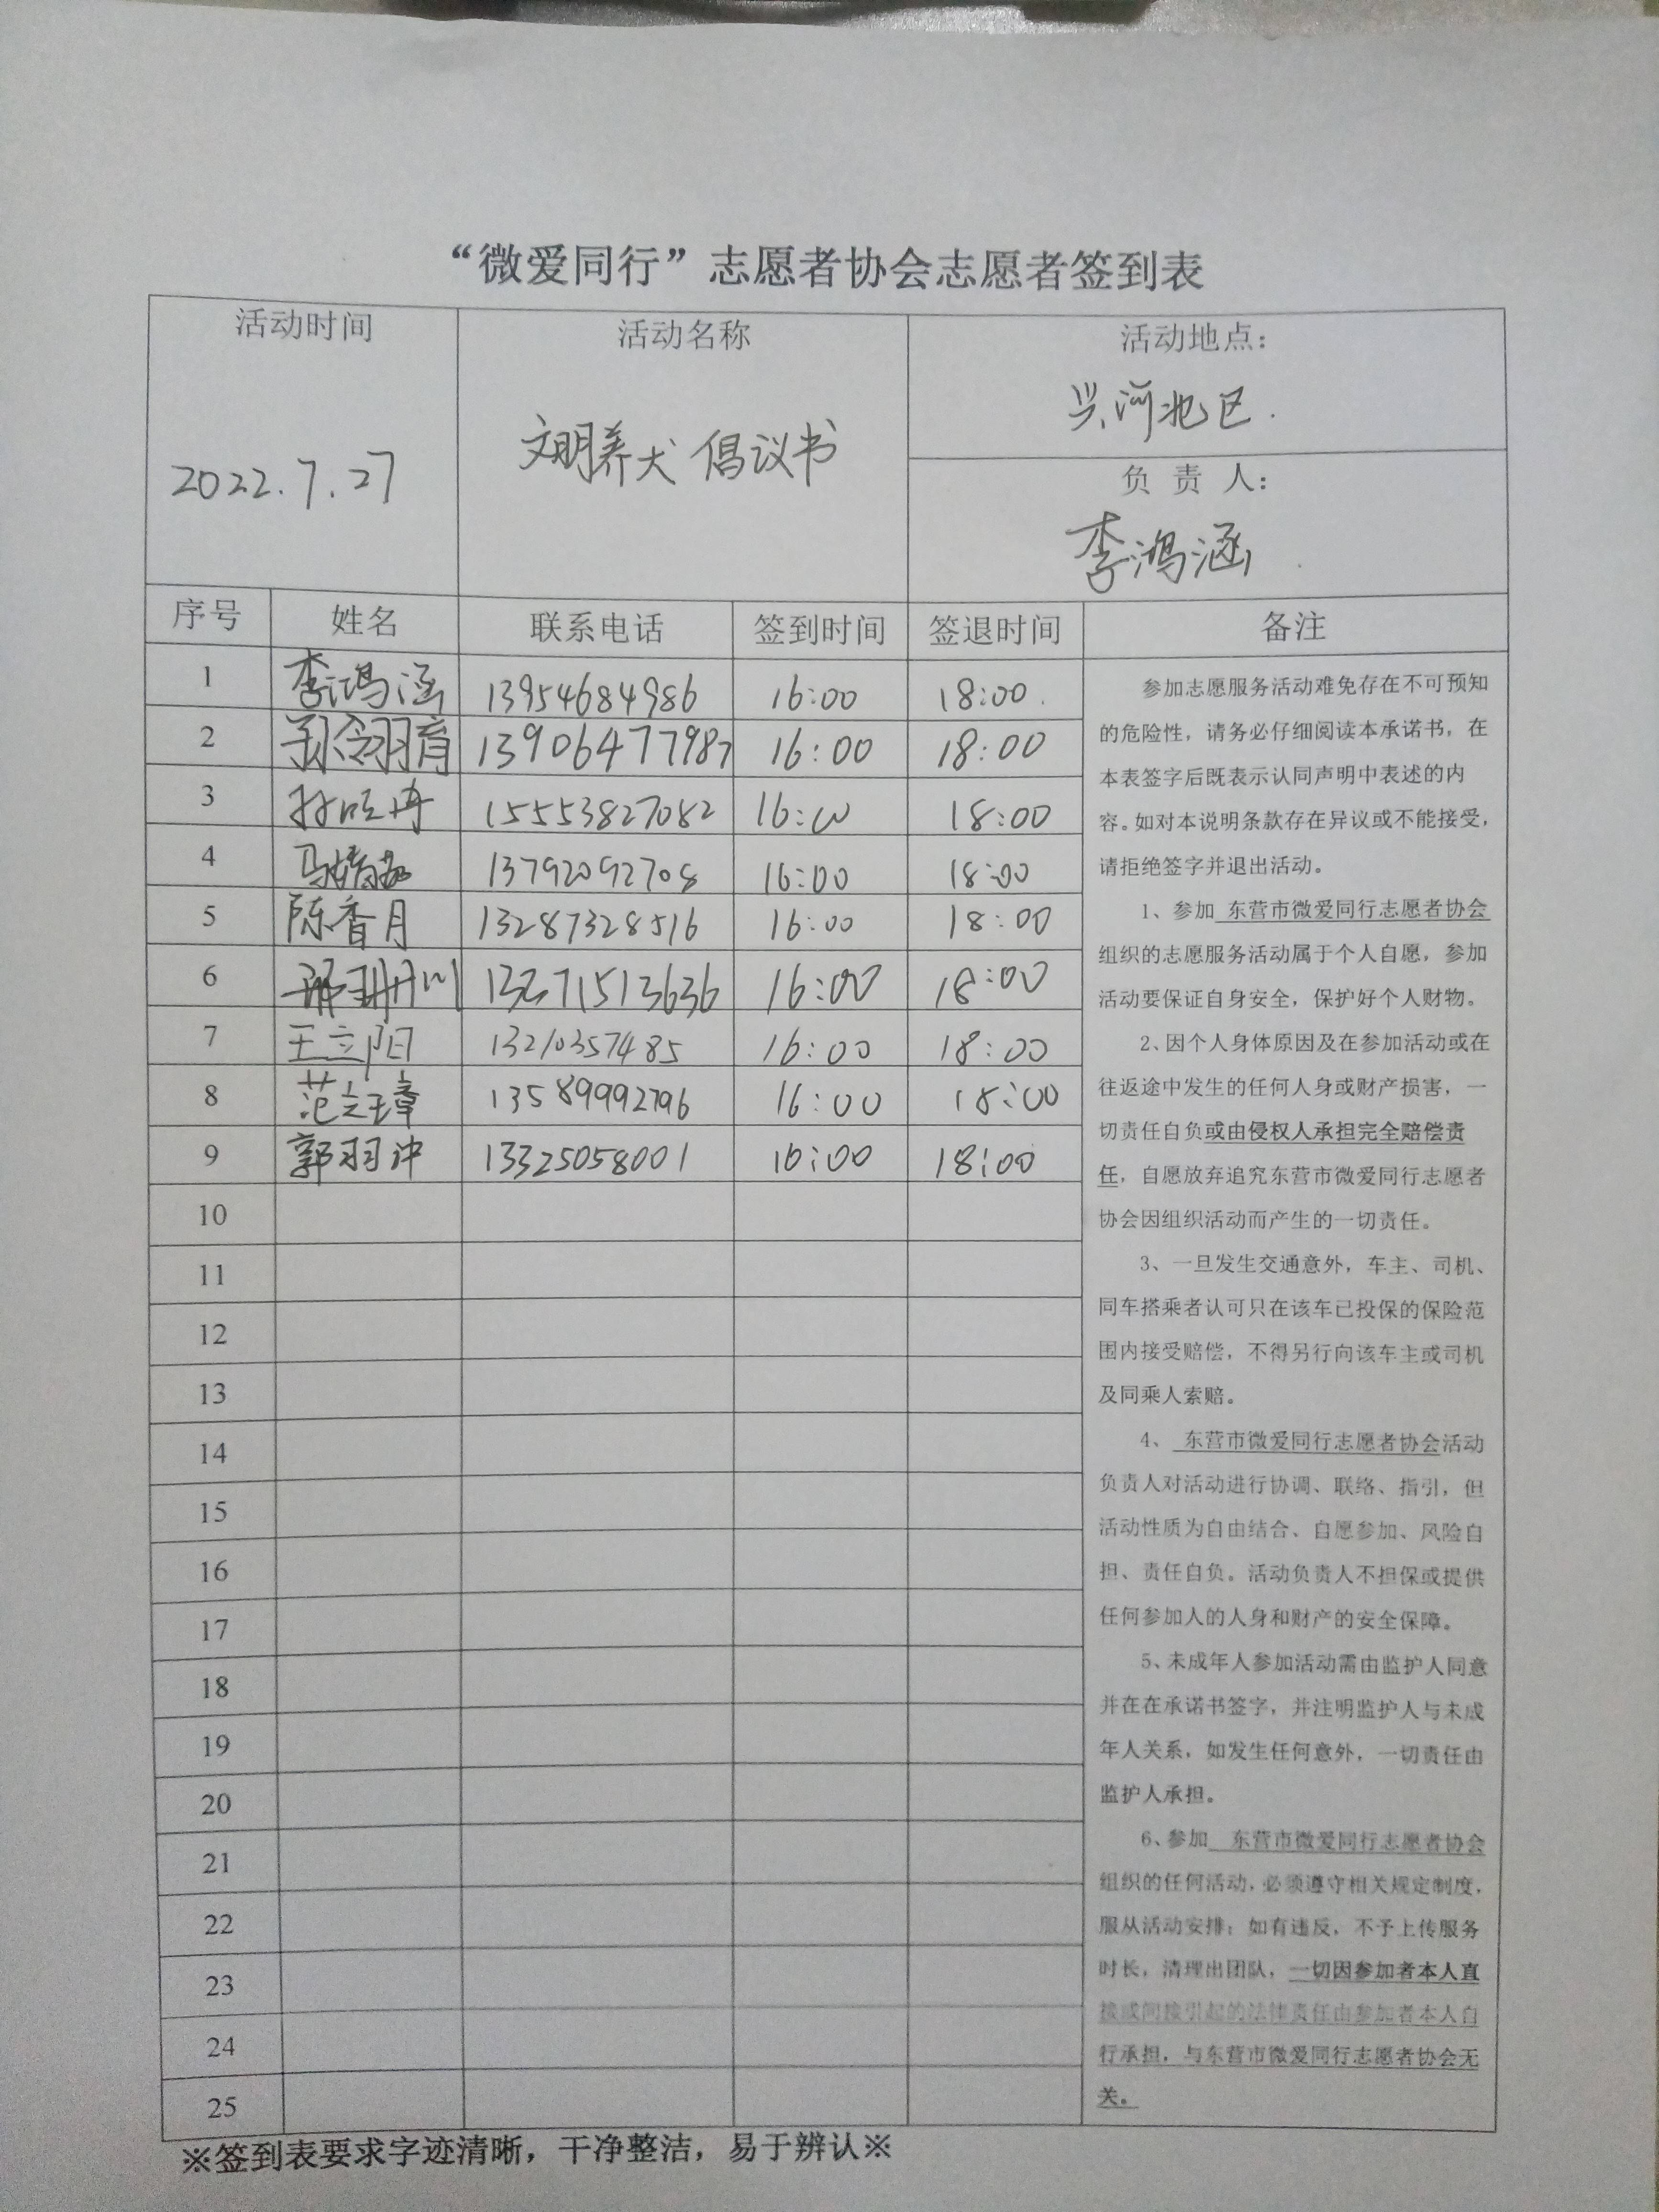 “微爱同行”志愿者协会志愿者签到表
活动时间 活动名称 活动地点：
兴河北区.
2022.7.27 文明养犬 倡议书
负 责 人：
李鸿涵
序号 姓名 联系电话 签到时间 签退时间 备注
1 李鸿涵 13954684986 16:00 18:00
2 13906477987 16:00 18:00
3 15553827082 16:00 18:00
4 13792092708 16:00 18:00
5 陈香月 13287328516 16:00 18:00
6 16:00 18:00
7 王立阳 13210357485 16:00 18:00
8 范文璋 13589992796 16:00 18:00
9 郭羽冲 13325058001 16:00 18:00
10
11
12
13
14
15
16
17
18
19
20
21
22
23
24
25
参加志愿服务活动难免存在不可预知
的危险性，请务必仔细阅读本承诺书，在
本表签字后既表示认同声明中表述的内
容。如对本说明条款存在异议或不能接受，
请拒绝签字并退出活动。
1、参加 东营市微爱同行志愿者协会
组织的志愿服务活动属于个人自愿，参加
活动要保证自身安全，保护好个人财物。
2、因个人身体原因及在参加活动或在
往返途中发生的任何人身或财产损害，一
切责任自负或由侵权人承担完全赔偿责
任，自愿放弃追究东营市微爱同行志愿者
协会因组织活动而产生的一切责任。
3、一旦发生交通意外，车主、司机、
同车搭乘者认可只在该车已投保的保险范
围内接受赔偿，不得另行向该车主或司机
及同乘人索赔。
4、 东营市微爱同行志愿者协会活动
负责人对活动进行协调、联络、指引，但
活动性质为自由结合、自愿参加、风险自
担、责任自负。活动负责人不担保或提供
任何参加人的人身和财产的安全保障。
5、未成年人参加活动需由监护人同意
并在在承诺书签字，并注明监护人与未成
年人关系，如发生任何意外，一切责任由
监护人承担。
6、参加 东营市微爱同行志愿者协会
组织的任何活动，必须遵守相关规定制度，
服从活动安排；如有违反，不予上传服务
时长，清理出团队，一切因参加者本人直
接或间接引起的法律责任由参加者本人自
行承担，与东营市微爱同行志愿者协会无
关。
※签到表要求字迹清晰，干净整洁，易于辨认※